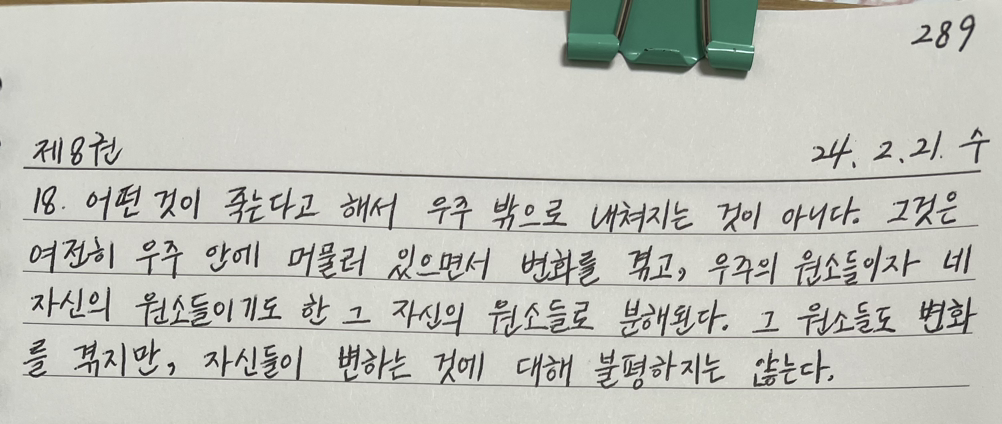 289
제8권 24. 2. 21. 수
18. 어떤 것이 죽는다고 해서 우주 밖으로 내쳐지는 것이 아니다. 그것은
여전히 우주 안에 머물러 있으면서 변화를 겪고, 우주의 원소들이자 네
자신의 원소들이기도 한 그 자신의 원소들로 분해된다. 그 원소들도 변화
를 겪지만, 자신들이 변하는 것에 대해 불평하지는 않는다.